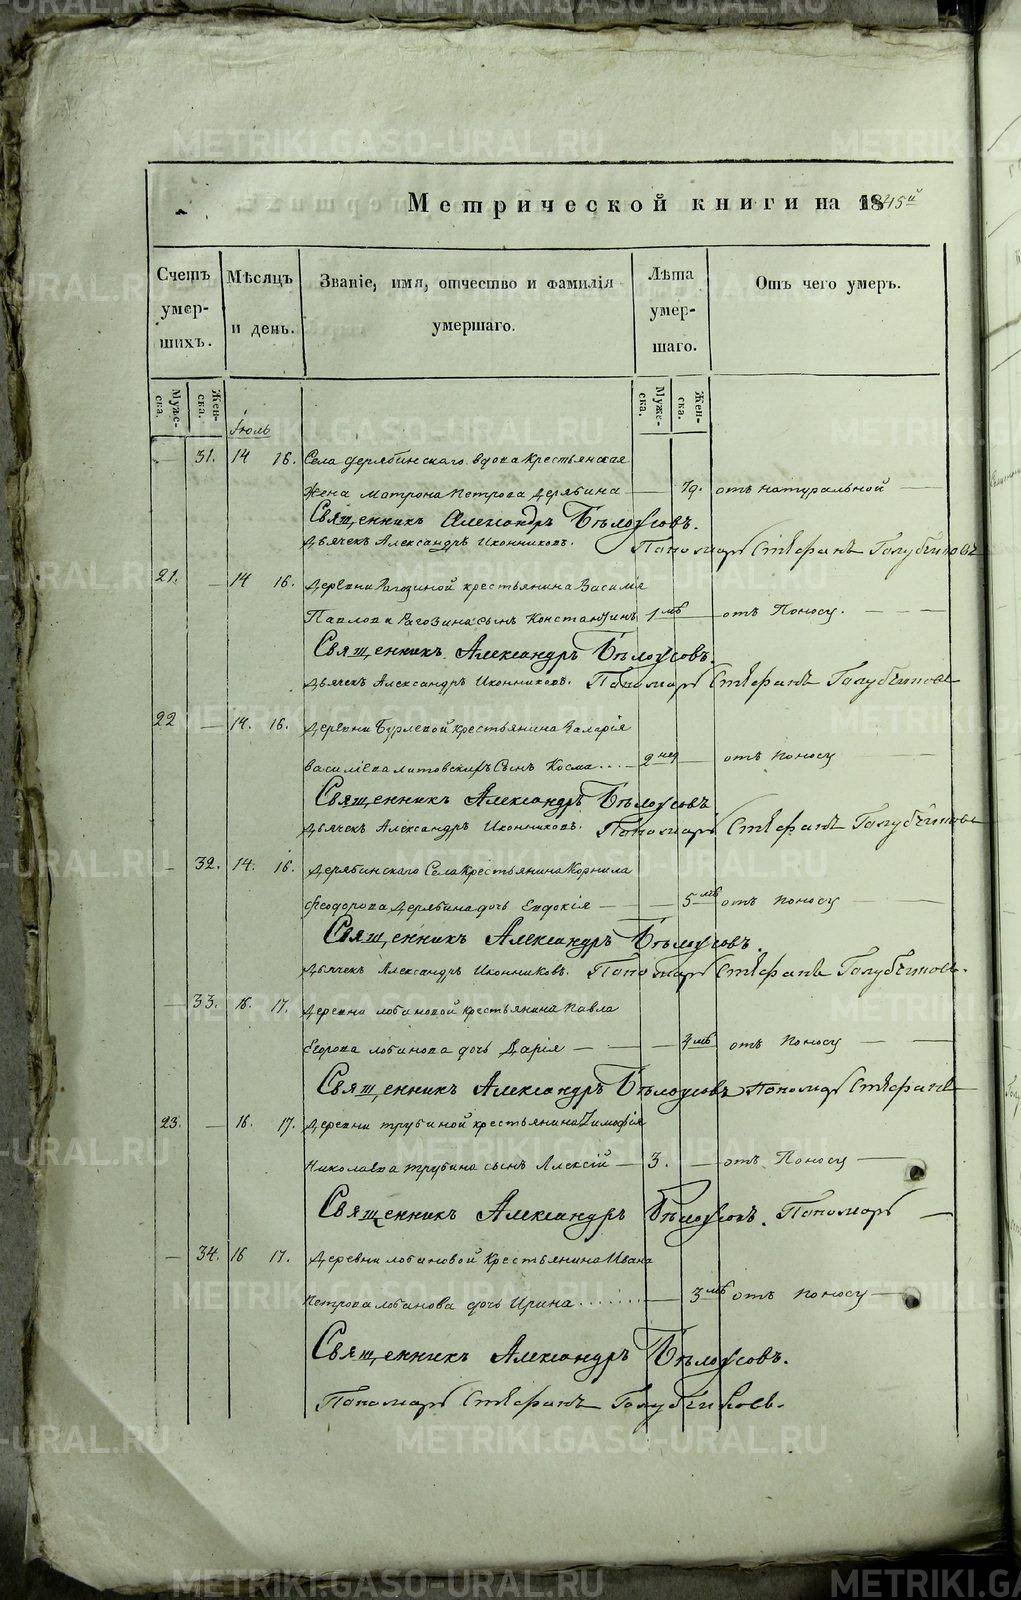 METRIKI.GASO-URAL.RU
Метрической книги на 1845й
Счетъ умер-шихъ.
Мѣсяцъ и день.
Званіе, имя, отчество и фамилія умершаго.
Лѣта умер-шаго.
Отъ чего умеръ.
Муже-ска.
Жен-ска.
Муже-ска.
Жен-ска.
Іюль
— 31. 14 16. Села Дерябинскаго вдова Крестьянская
жена Матрона Петрова Дерябина — 79. отъ натуральной —
Священникъ Александръ Бѣлоусовъ.
Дьячекъ Александръ Иконниковъ. Пономарь Стефанъ Голубчиковъ
21. — 14 16. Деревни Рагозиной крестьянина Василія
Павлова Рагозина сынъ Константинъ 1 мѣ — отъ Поносу. — —
Священникъ Александръ Бѣлоусовъ.
Дьячекъ Александръ Иконниковъ. Пономарь Стефанъ Голубчиковъ
22 — 14. 16. Деревни Бурлевой крестьянина Валерія
Василіева Литовскихъ Сынъ Косма .... — 2 нед — отъ поносу —
Священникъ Александръ Бѣлоусовъ
Дьячекъ Александръ Иконниковъ. Пономарь Стефанъ Голубчиковъ
— 32. 14. 16. Дерябинскаго Села Крестьянина Корнила
Феодорова Дерябина дочь Евдокія — — 5 мѣ отъ поносу —
Священникъ Александръ Бѣлоусовъ.
Дьячекъ Александръ Иконниковъ. Пономарь Стефанъ Голубчиковъ.
— 33. 16. 17. Деревни Лобановой крестьянина Павла
Егорова Лобанова дочь Дарія — — — 4 мѣ отъ поносу — —
Священникъ Александръ Бѣлоусовъ Пономарь Стефанъ
23. — 16. 17. Деревни Трубиной крестьянина Тимофія
Николаева Трубина сынъ Алексій — 3. — отъ Поносу —
Священникъ Александръ Бѣлоусовъ. Пономарь —
— 34. 16 17. Деревни Лобановой Крестьянина Ивана
Петрова Лобанова дочь Ирина ....... — 3 мѣ отъ поносу —
Священникъ Александръ Бѣлоусовъ.
Пономарь Стефанъ Голубчиковъ.